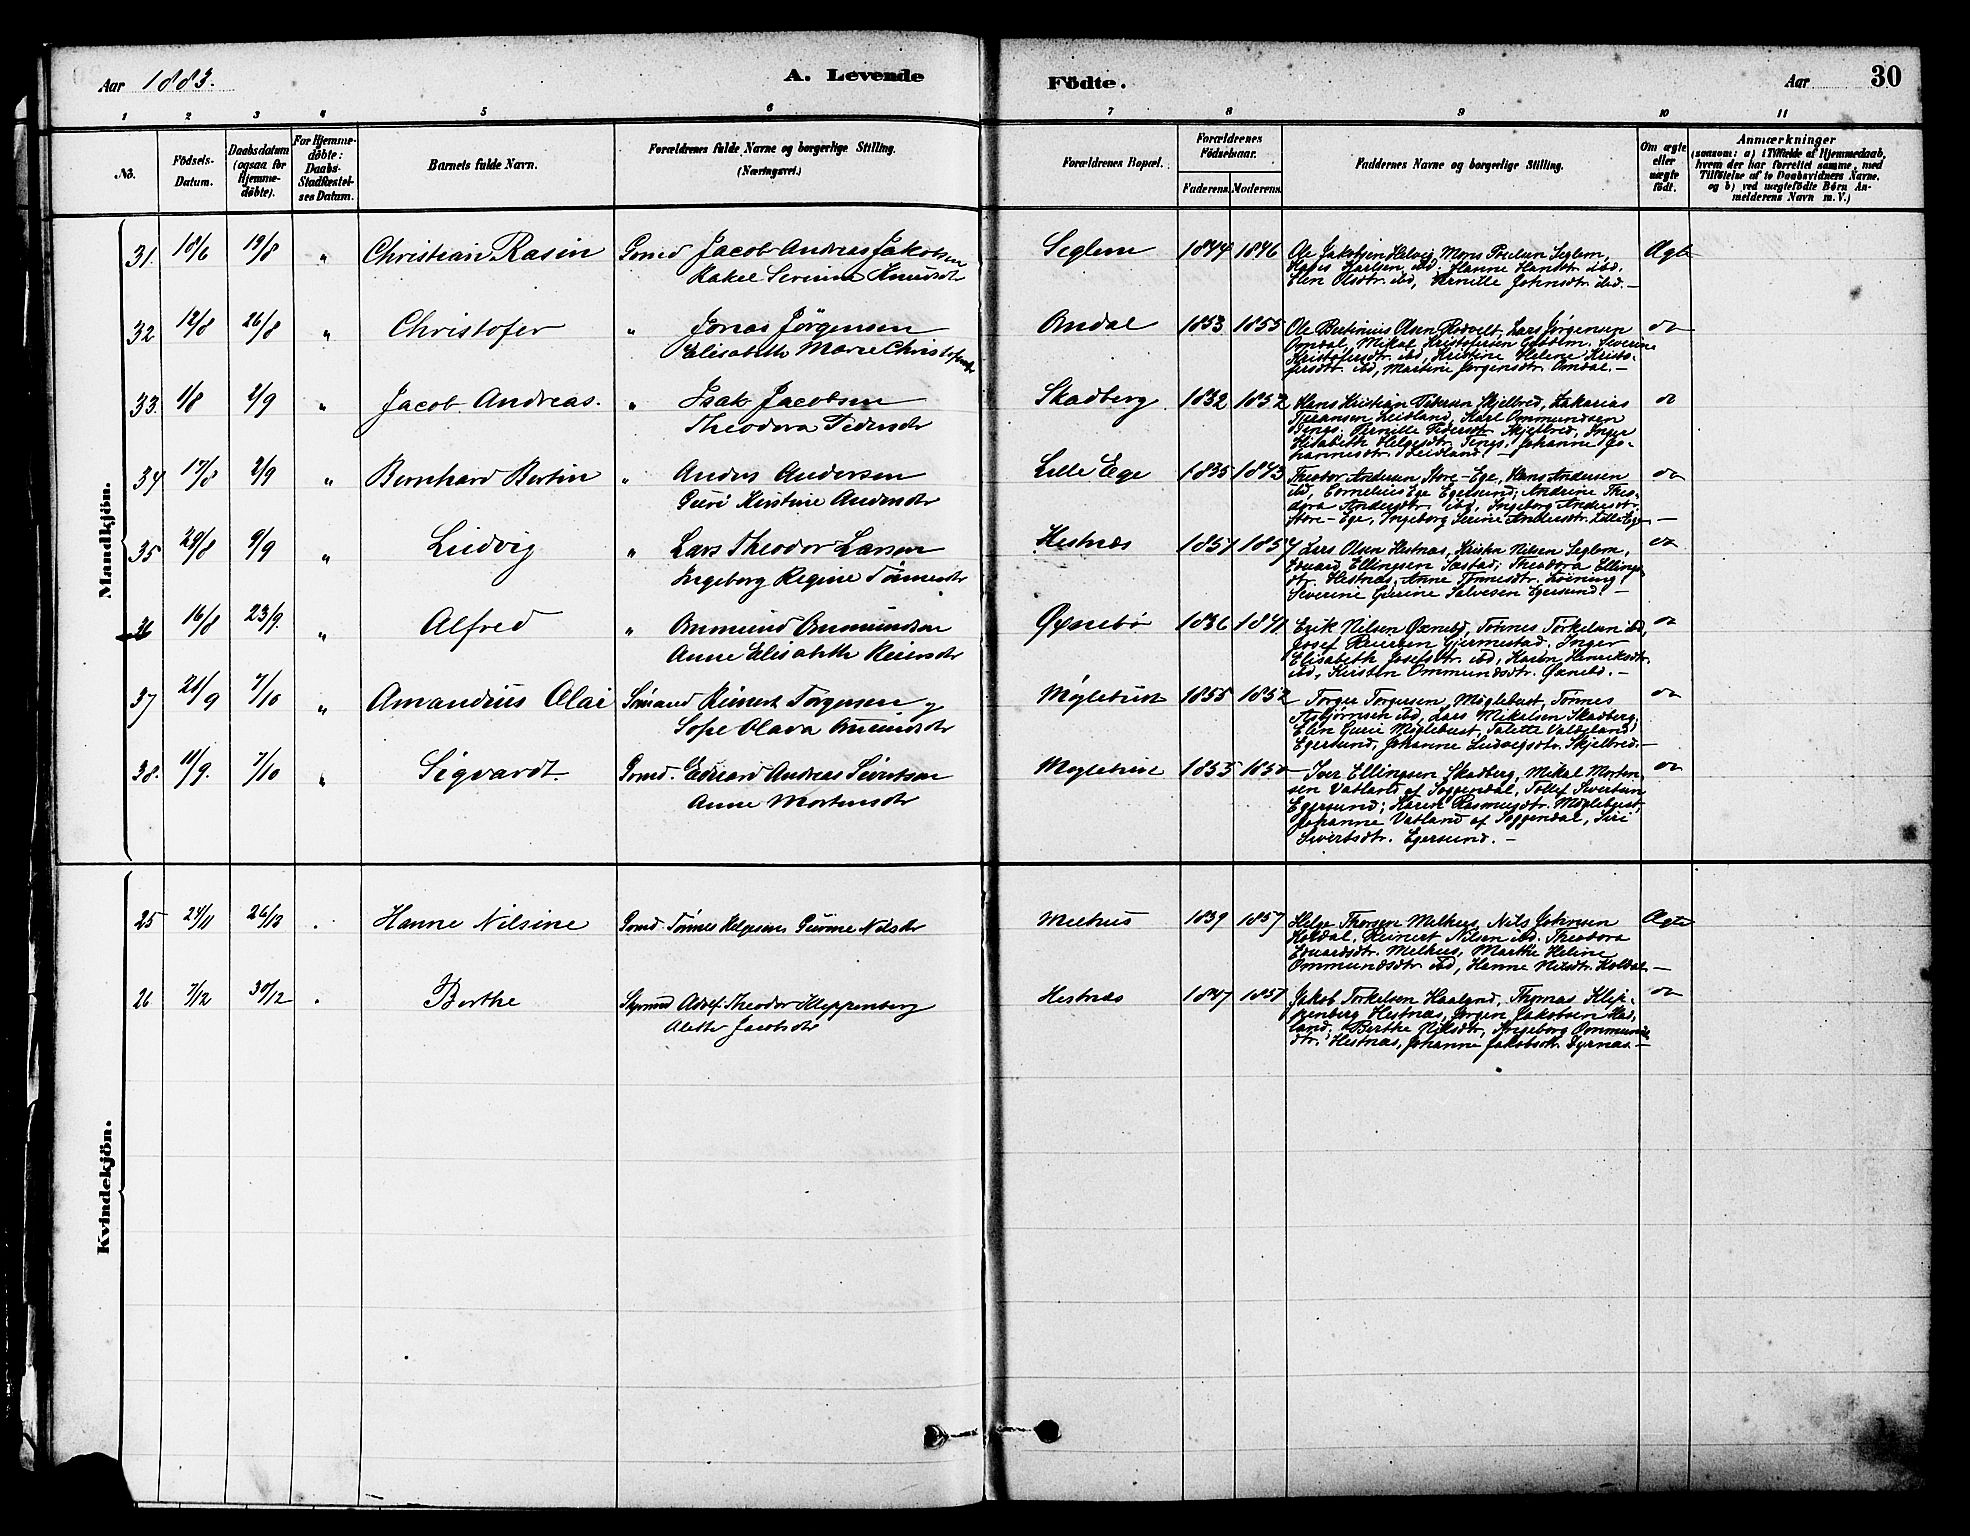 Aar 1883.
A. Levende
Födte.
Aar
30
1 2 3 4 5 6 7 8 9 10 11
No.
Födsels-
Datum.
Daabsdatum
(ogsaa for
Hjemme-
döbte).
For Hjemme-
döbte:
Daabs-
Stadfæstel-
ses Datum.
Barnets fulde Navn.
Forældrenes fulde Navne og borgerlige Stilling.
(Næringsvei.)
Forældrenes Bopæl.
Forældrenes
Födselsaar.
Faderens. Moderens.
Faddernes Navne og borgerlige Stilling.
Om ægte
eller
uægte
födt.
Anmærkninger
(saasom: a) i Tilfælde af Hjemmedaab,
hvem der har forrettet samme, med
Tilföielse af to Daabsvidners Navne,
og b) ved uægtefödte Börn An-
melderens Navn m. V.)
Mandkjön.
31 18/6 19/8 " Christian Rasin Gmd Jacob Andreas Jakobsen
Rakel Serine Knudsdtr
Seglem 1844 1846
Ole Jakobsen Helvig, Mons Poulsen Seglem,
ibd. Hanne Hansdtr ibd.
Elen Olsdtr. ibd, Pernille Johnsdtr. ibid. —
Ægte
32 12/8 26/8 " Christofer " Jonas Jörgensen
Elisabeth Marie Christofersdtr
Omdal 1853 1855
Ole Bertinius Olsen Rodvelt, Lars Jörgensen
Omdal, Mikal Kristofersen Severine
Kristofersdtr. ibd, Kristine Helene Kristo-
fersdtr. ibd, Martine Jörgensdtr. Omdal. —
do
33 1/8 2/9 " Jacob Andreas. " Isak Jacobsen
Theodora Pedersdtr
Skadberg 1832 1852
Hans Kristian Pedersen Skjelbred, Zakarias
Leidland, Karl Ommundsen
Tengs, Pernille Pedersdtr. Skjelbred, Inger
Elisabeth Helgesdtr. Tengs, Johanne Jo-
hannesdtr. Leidland. —
do
34 17/8 2/9 " Bernhard Bertin " Anders Andersen
Guri Kirstine Andersdtr
Lille Ege 1835 1843
Theodor Andersen Store-Ege, Hans Andersen
ibd, Cornelius Ege Egersund; Andrine Theo-
dora Andersdtr. ibd, Ingeborg Andersdtr.
Store-Ege, Ingeborg Serine Andersdtr. Lille Ege —
do
35 29/8 9/9 " Ludvig " Lars Theodor Larsen
Ingeborg Regine Tönnesdtr
Hestnæs 1851 1857
Lars Olsen Hestnæs, Kristen Nilsen Seglem,
Eduard Ellingsen Sæstad; Theodora Ellings-
dtr. Hestnæs, Anne Tönnesdtr.
Severine Gurine Salvesen Egersund. —
do
36 16/8 23/9. " Alfred " Ommund Ommundsen
Anne Elisabeth Reiersdtr
Øxnebö 1836 1841
Erik Nilsen Øxnebö, Tönnes Torkelsen ibd,
Josef Reiersen Gjermestad, Inger
Elisabeth Josefsdtr. ibd, Karen Henriksdtr.
ibd, Kirsten Ommundsdtr. Øxnebö. —
do
37 21/9 7/10 " Amandius Olai Sömand Reinert Torgersen og
Sofie Olava Omundsdtr
Möglebust 1855 1852
Torger Torgersen, Möglebust, Tönnes
Asbjörnsen ibd, Lars Mikelsen Skadberg,
Elen Gurie Möglebust, Talette
Egersund, Johanne Ludvigsdtr. Skjelbred. —
do
38. 11/9. 7/10 " Sigvardt Gmd. Edvard Andreas Sivertsen
Anne Mortensdtr
Möglebust 1853 1850
Iver Ellingsen Skadberg, Mikal Morten-
sen Vatland af Soggendal, Tollef Sivertsen
Egersund; Karen Rasmusdtr. Möglebust,
Johanne Vatland af Soggendal, Siri
Sivertsdtr. Egersund. —
do
Kvindekjön.
25 24/11 26/12 . Hanne Nilsine Gmd Tönnes Helgesen Gurine Nilsdtr
Melhus 1839 1857
Helge Thorsen Melhus, Nils Johnsen
Koldal, Reinert Nilsen ibd. Theodora
Eduardsdtr. Melhus, Marthe Heline
Ommundsdtr. ibd, Hanne Nilsdtr. Koldal —
Ægte
26 7/12 30/12 . Berthe Styrmd Adolf Theodor Kleppenberg
Alette Jacobsdtr
Hestnæs 1847 1857
Jakob Torkelsen Haaland, Thomas Klep-
penberg Hestnæs, Jörgen Jakobsen
land; Berthe Nilsdtr, Ingeborg Ommunds-
dtr. Hestnæs, Johanne Jakobsdtr. —
do